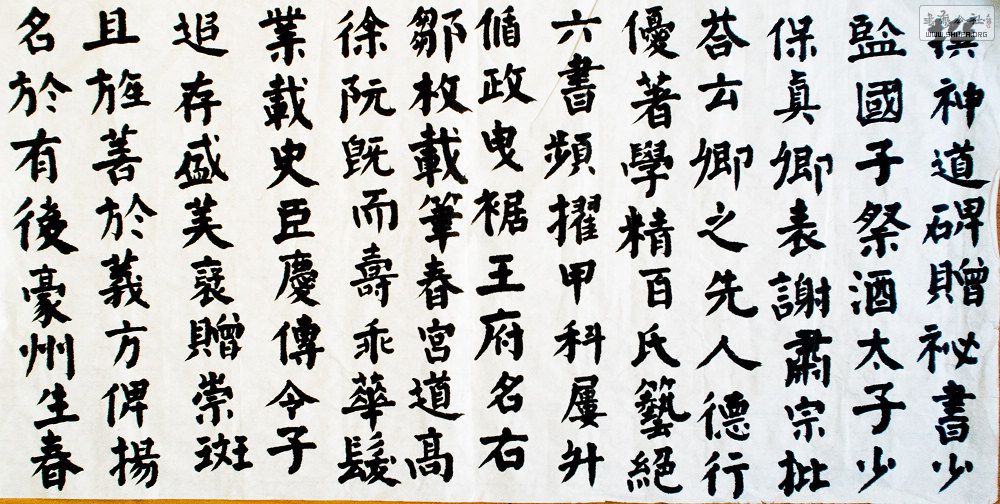 撰神道碑贈祕書少
監國子祭酒太子少
保真卿表謝肅宗批
荅云卿之先人德行
優著學精百氏藝絕
六書頻擢甲科屢升
循政曳裾王府名右
鄒枚載筆春宮道高
徐阮既而壽乖華髮
業載史臣慶傳令子
追存盛美襃贈崇班
且旌善於義方俾揚
名於有後豪州生春
WWW.SHW28.ORG